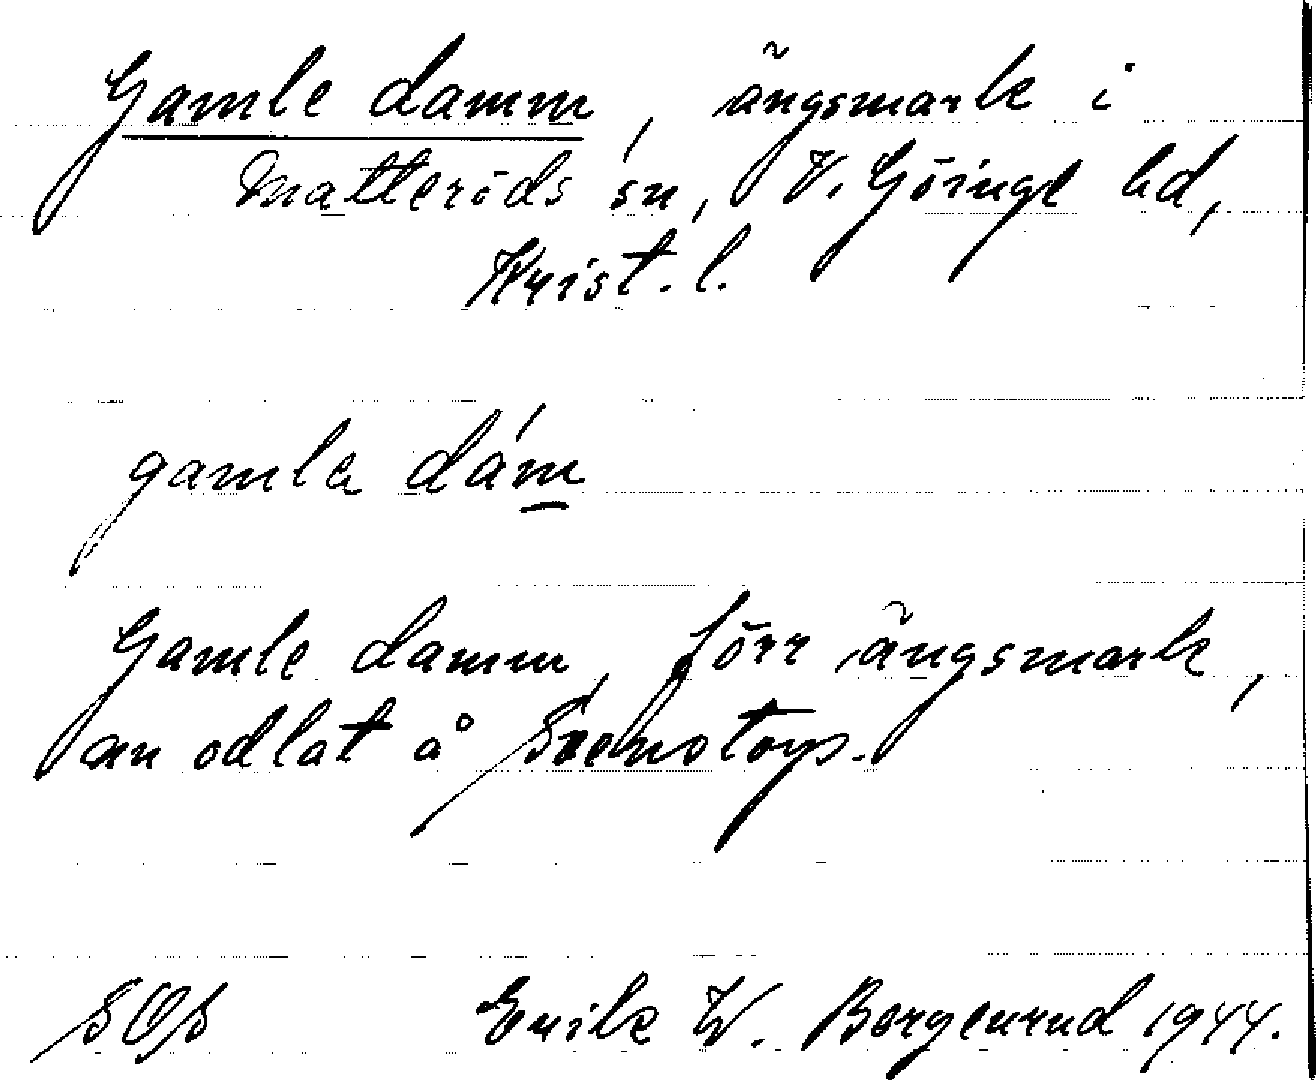 Gamle damm, ängsmark i
Matteröds sn, V. Göinge hd,
Krist. l.
gamla dám
Gamle damm, förr ängsmark,
nu odlat å Svenstorp.
SOS Erik W. Borgenrud 1944.